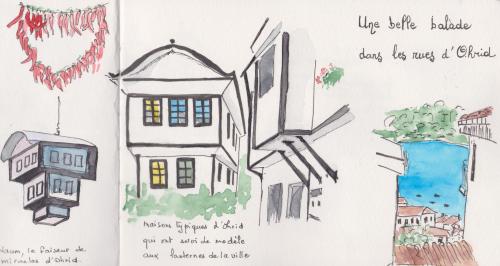 Une belle balade
dans les rues d'Ohrid
maisons typiques d'Ohrid
qui ont servi de modèle
aux lanternes de la ville
Naum, le faiseur de
miracles d'Ohrid.